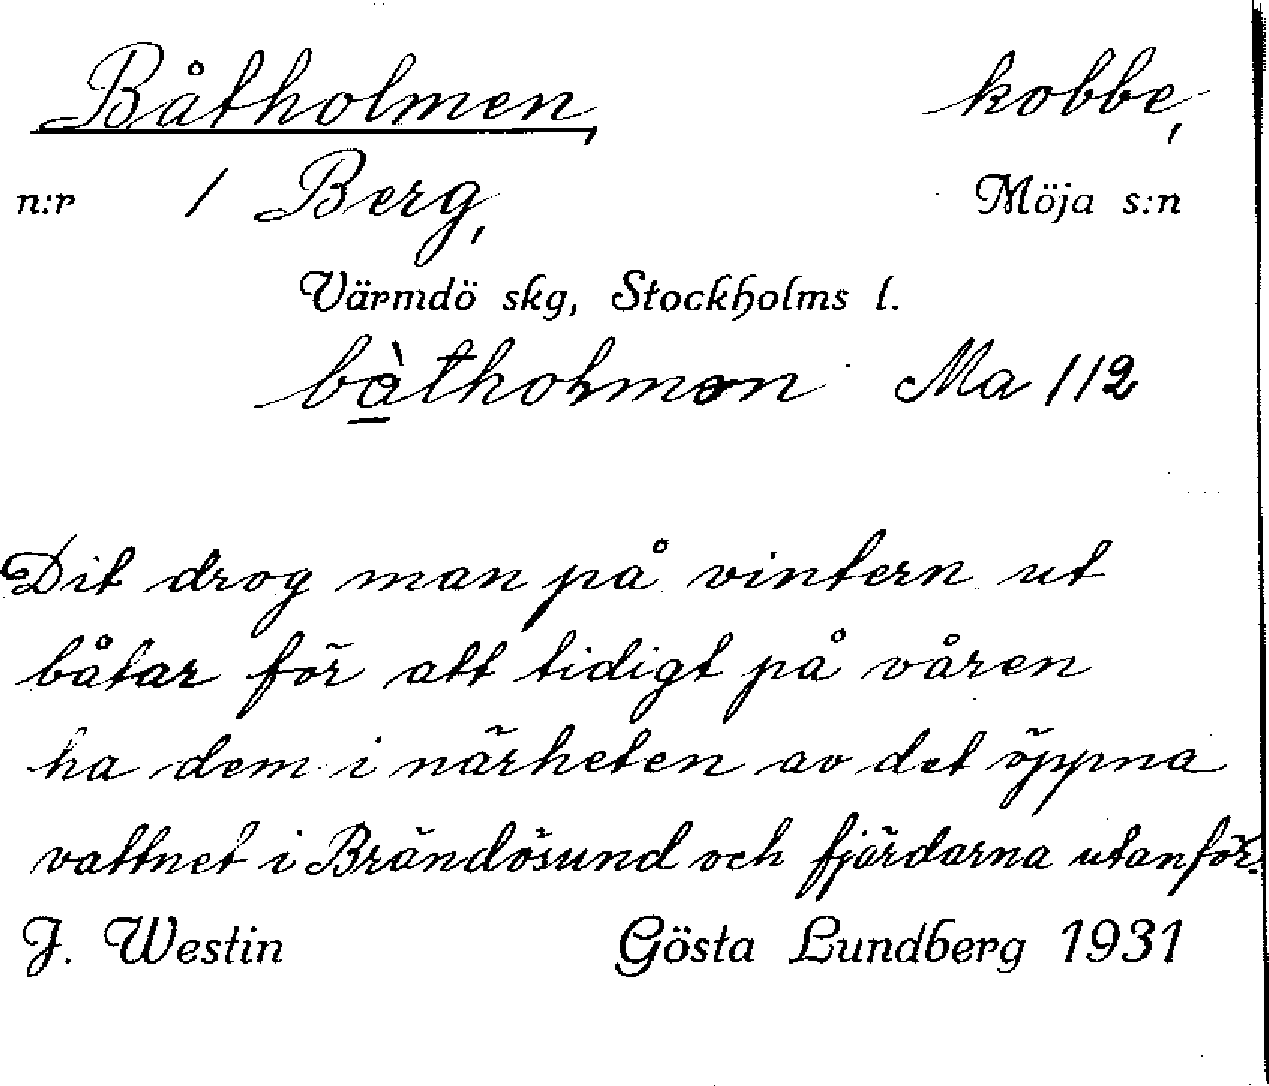 Båtholmen, kobbe,
n:r 1 Berg, Möja s:n
Värmdö skg, Stockholms l.
bà̱tholmən Ma 112
Dit drog man på vintern ut
båtar för att tidigt på våren
ha dem i närheten av det öppna
vattnet i Brändösund och fjärdarna utanför.
J. Westin Gösta Lundberg 1931